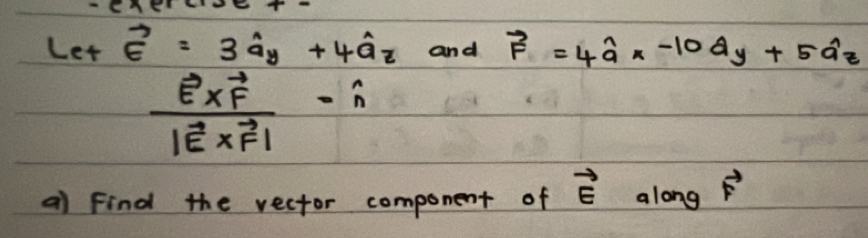 - exercise + -
Let E⃗ = 3 â_y + 4 â_z and F⃗ = 4 â_x - 10 â_y + 5 â_z
E⃗ x F⃗ / |E⃗ x F⃗| - n̂
a) Find the vector component of E⃗ along F⃗